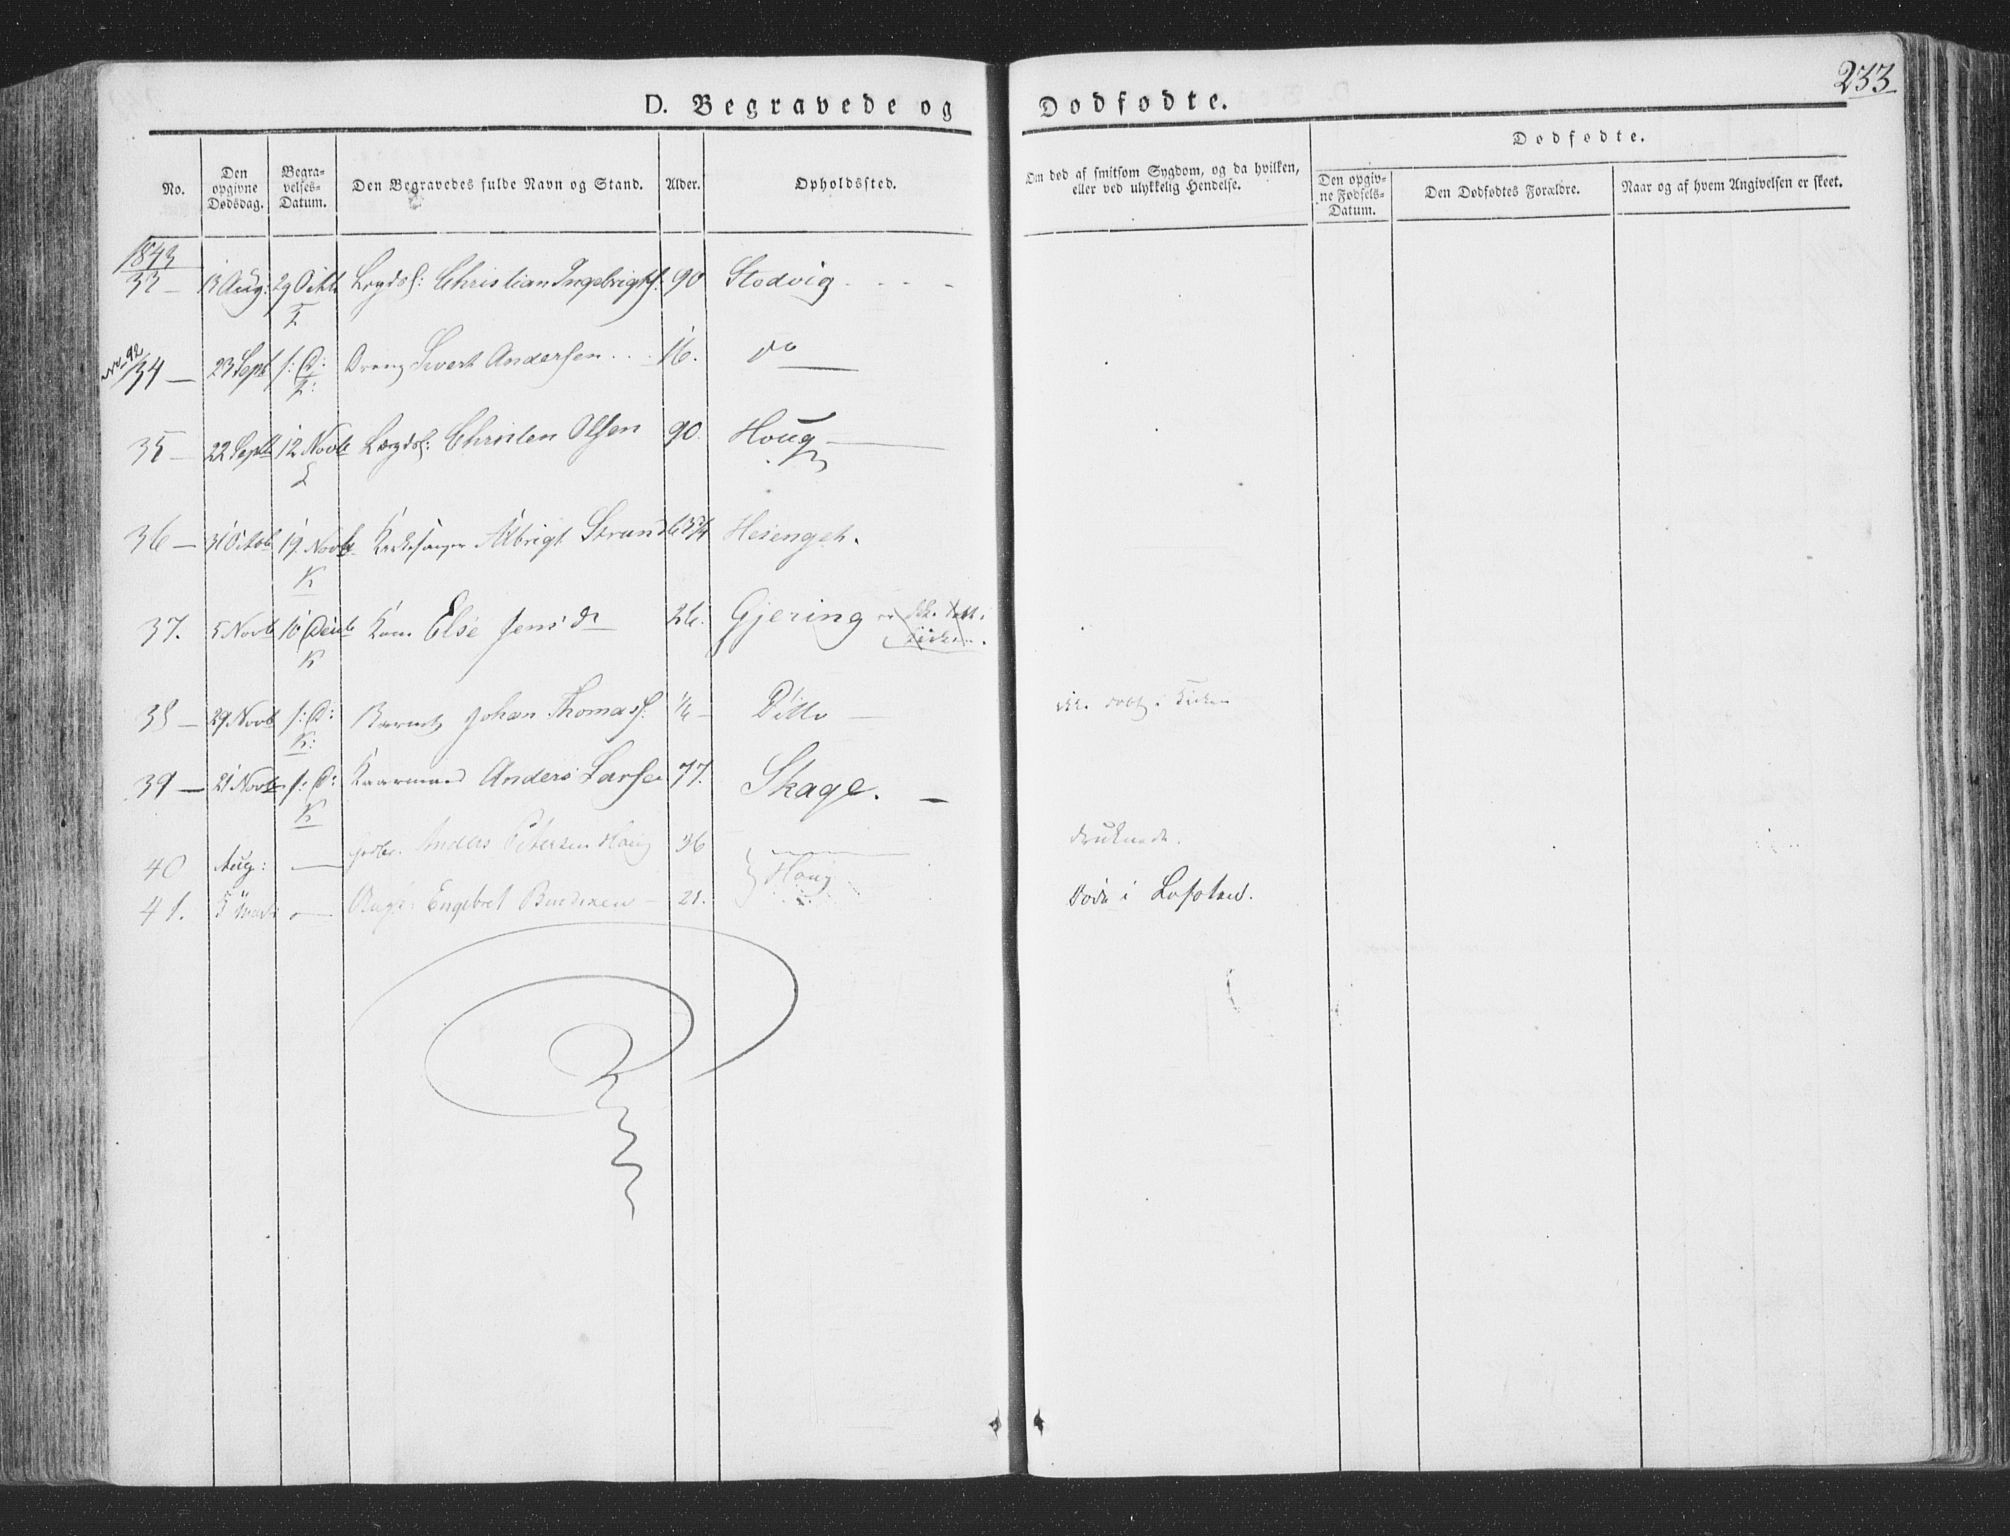 233
D. Begravede og Dodfodte.
Dodfodte.
No.
Den opgivne Dodsdag.
Begravelses-Datum.
Den Begravedes fulde Navn og Stand.
Alder.
Opholdssted.
Om død af smitsom Sygdom, og da hvilken, eller ved ulykkelig Hendelse.
Den opgivne Fodsels-Datum.
Den Dodfodtes Forældre.
Naar og af hvem Angivelsen er skeet.
1843
33 — 13 Aug: 29 Octb Lægdsl: Christian Ingebrigts. 90 Stodvig - - -
34 — 23 Sept s: D: Dreng Sivert Andersen . . 16. do —
35 — 22 Septb 12 Novb Lægdsl: Christen Olsen 90. Houg —
36 — 31 Octob 19 Novb Kirkesanger Albrigt Strand 63¾ Heienget.
K
37. 5 Novb 10 Decb Kone Else Jensdr 36. Gjering
K
38 — 29 Novb s: D: Barnet Johan Thomass: ¼ — Ditto — ikke døbt i Kirken
K:
39 — 21 Novb s: D: Kaarmand Anders Larsen 77. Skage. —
K
40 Aug: — Anders Petersen Houg 36 Houg druknede.
41. 5 Marts — Engebret 21. Døde i Lofoten.